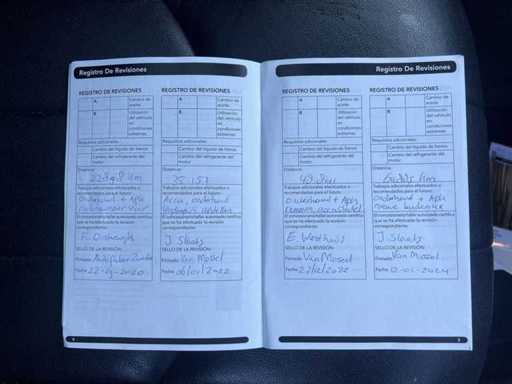 Registro De Revisiones
REGISTRO DE REVISIONES
A
Cambio de aceite
B
Utilización del vehículo en condiciones extremas
Requisitos adicionales:
Cambio del líquido de frenos
Cambio del refrigerante del motor
Distancia:
Km
Trabajos adicionales efectuados o recomendados para el futuro:
Onderhoud + Apk
El concesionario/taller autorizado certifica que se ha efectuado la revisión correspondiente:
SELLO DE LA REVISIÓN:
Firmado
Fecha 22-9-2020
REGISTRO DE REVISIONES
A
Cambio de aceite
B
Utilización del vehículo en condiciones extremas
Requisitos adicionales:
Cambio del líquido de frenos
Cambio del refrigerante del motor
Distancia:
35.151
Trabajos adicionales efectuados o recomendados para el futuro:
onderhoud
El concesionario/taller autorizado certifica que se ha efectuado la revisión correspondiente:
J.
SELLO DE LA REVISIÓN:
Firmado Van Mossel
Fecha 06/01/2022
Registro De Revisiones
REGISTRO DE REVISIONES
A
Cambio de aceite
B
Utilización del vehículo en condiciones extremas
Requisitos adicionales:
Cambio del líquido de frenos
Cambio del refrigerante del motor
Distancia:
Trabajos adicionales efectuados o recomendados para el futuro:
Onderhoud + Apk
El concesionario/taller autorizado certifica que se ha efectuado la revisión correspondiente:
E.
SELLO DE LA REVISIÓN:
Firmado Van Mossel
Fecha 22/12/2022
REGISTRO DE REVISIONES
A
Cambio de aceite
B
Utilización del vehículo en condiciones extremas
Requisitos adicionales:
Cambio del líquido de frenos
Cambio del refrigerante del motor
Distancia:
Km
Trabajos adicionales efectuados o recomendados para el futuro:
Onderhoud + Apk
El concesionario/taller autorizado certifica que se ha efectuado la revisión correspondiente:
J.
SELLO DE LA REVISIÓN:
Firmado Van Mossel
Fecha